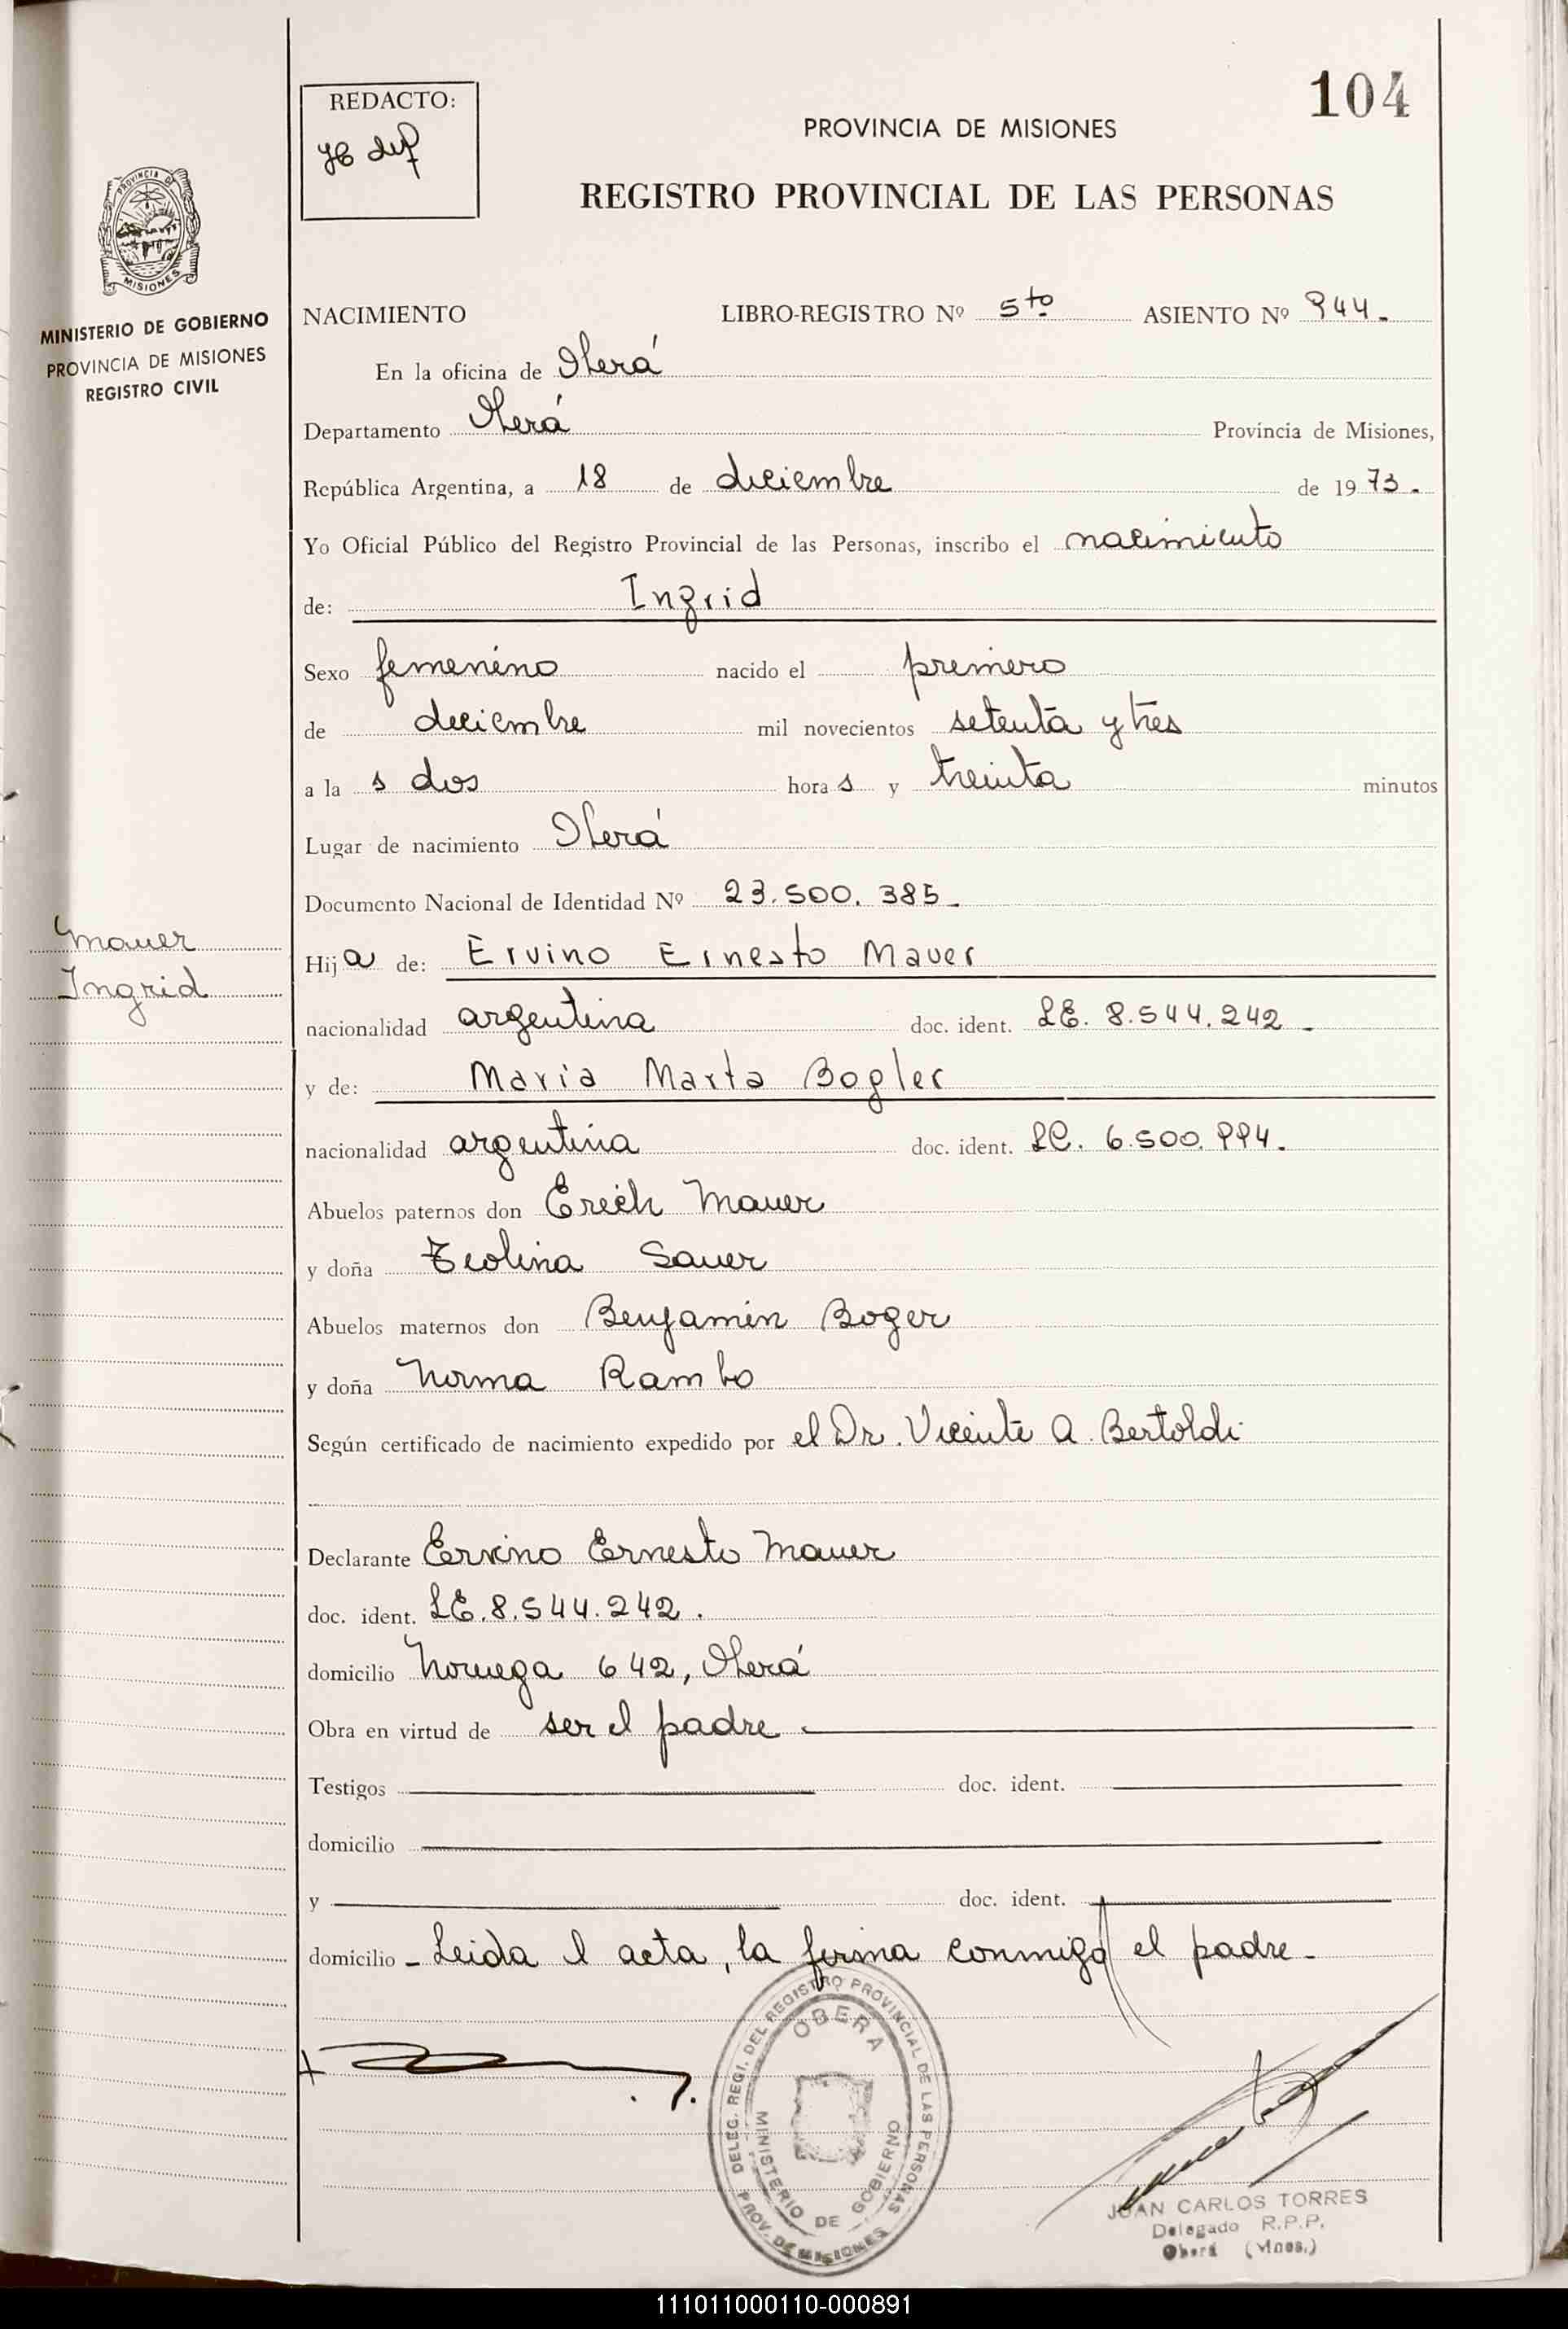 104
REDACTO:
PROVINCIA DE MISIONES
REGISTRO PROVINCIAL DE LAS PERSONAS
PROVINCIA DE
MISIONES
MINISTERIO DE GOBIERNO
PROVINCIA DE MISIONES
REGISTRO CIVIL
NACIMIENTO LIBRO-REGISTRO Nº 5to ASIENTO Nº 944.
En la oficina de Oberá
Departamento Oberá Provincia de Misiones,
República Argentina, a 18 de diciembre de 1973.
Yo Oficial Público del Registro Provincial de las Personas, inscribo el nacimiento
de: Ingrid
Sexo femenino nacido el primero
de diciembre mil novecientos setenta y tres
a la s dos hora s y treinta minutos
Lugar de nacimiento Oberá
Documento Nacional de Identidad Nº 23.500.385.
Mauer
Ingrid
Hija de: Ervino Ernesto Mauer
nacionalidad argentina doc. ident. LE. 8.544.242.
y de: Maria Marta Bogler
nacionalidad argentina doc. ident. LC. 6.500.994.
Abuelos paternos don Erich Mauer
y doña Teolina Sauer
Abuelos maternos don Benjamin Boger
y doña Norma Rambo
Según certificado de nacimiento expedido por el Dr. Vicente A. Bertoldi
Declarante Ervino Ernesto Mauer
doc. ident. LE. 8.544.242.
domicilio Noruega 642, Oberá
Obra en virtud de ser el padre.
Testigos doc. ident.
domicilio
y doc. ident.
domicilio - Leida l acta, la firma conmigo el padre.
DELEG. REGI. DEL REGISTRO PROVINCIAL DE LAS PERSONAS
OBERA
MINISTERIO DE GOBIERNO
PROV. DE MISIONES
JUAN CARLOS TORRES
Delegado R.P.P.
Oberá (Mnes.)
111011000110-000891